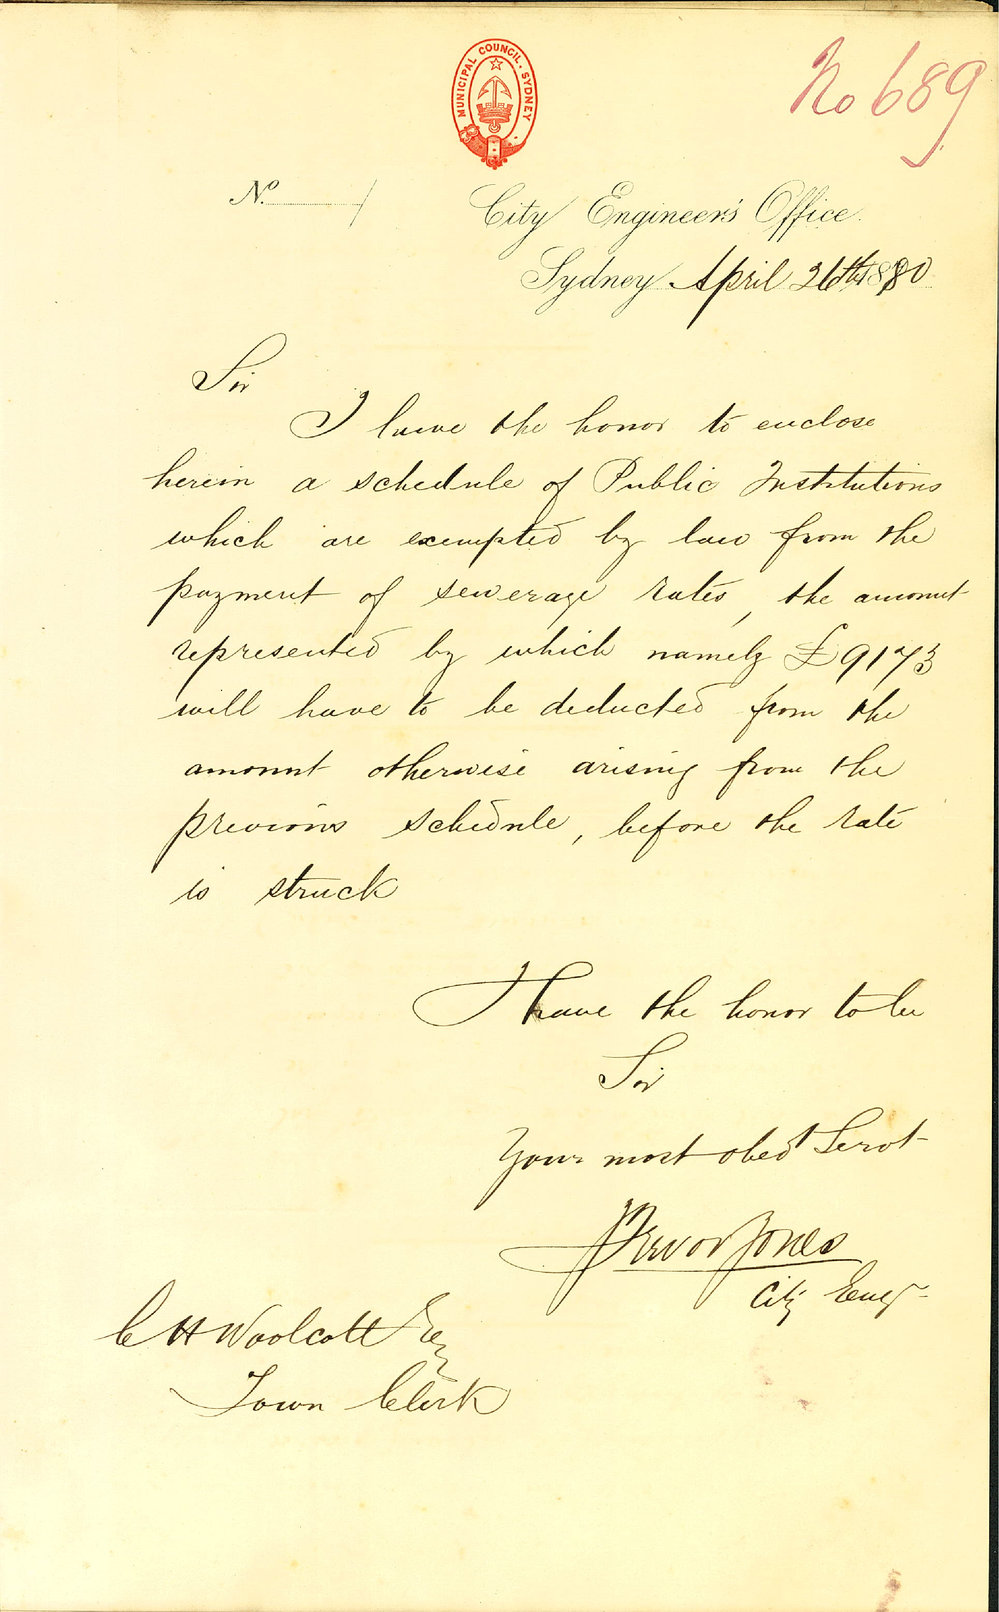 MUNICIPAL COUNCIL. SYDNEY
No 689
No.
City Engineer's Office.
Sydney April 26th 1880
Sir
I have the honor to enclose
herein a schedule of Public Institutions
which are exempted by law from the
payment of sewerage rates, the amount
represented by which namely £9173
will have to be deducted from the
amount otherwise arising from the
previous schedule, before the rate
is struck
I have the honor to be
Sir
Your most obedt Servt
Trevor Jones
City Engr
C H Woolcott Esq
Town Clerk